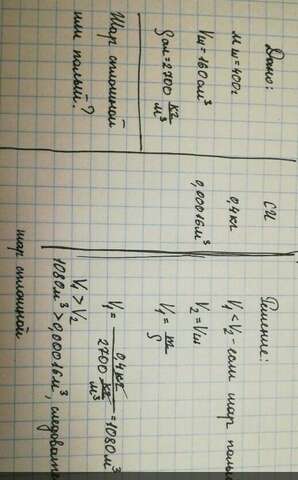 Дано:
mш=400г
Vш=160см³
ρал=2700 кг/м³
Шар сплошной
или полый?
СИ
0,4кг
0,00016м³
Решение:
V₁<V₂-если шар полый
V₂=Vш
V₁=m/ρ
V₁= 0,4кг/2700 кг/м³ =1080м³
V₁>V₂
1080м³>0,00016м³,
шар сплошной